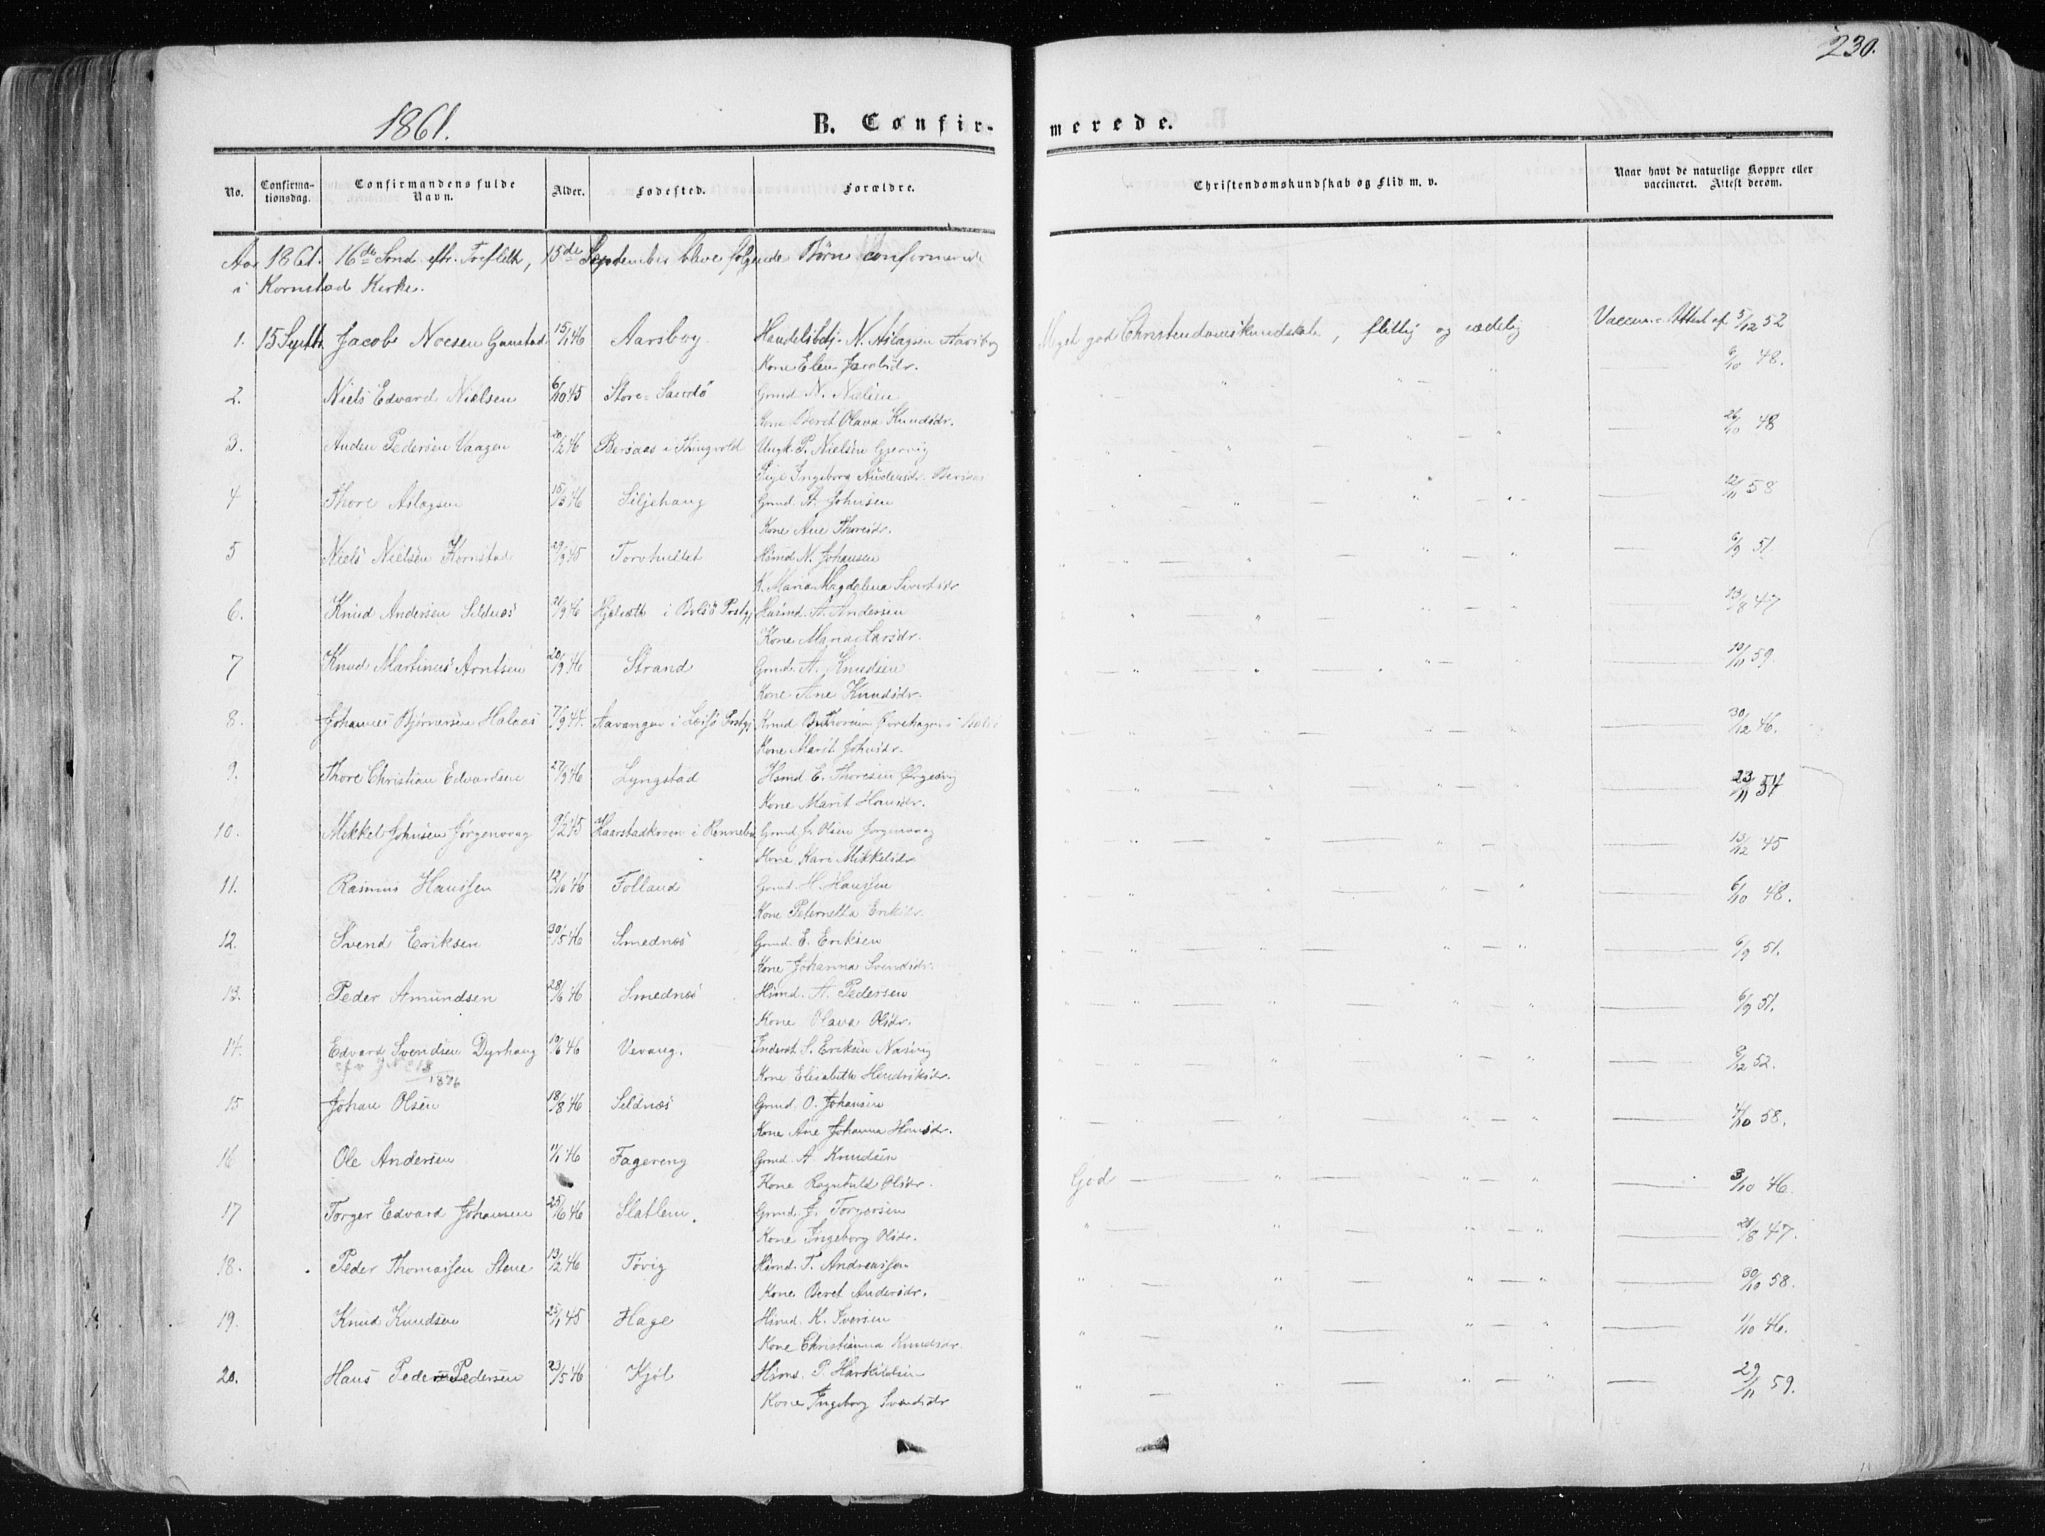 230.
1861.
B. Confir-
merede.
No.
Confirma-
tionsdag.
Confirmandens fulde
Navn.
Alder.
Fødested.
Forældre.
Christendomskundskab og Flid m. v.
Naar havt de naturlige Kopper eller
vaccineret. Attest derom.
Aar 1861. 16de Sønd. eftr. Trefoldh, 15de September bleve følgende Børn confirmerede
i Kornstad Kirke.
1. 15 Septb. Jacob Nocsen Ganstad 15/1 46 Aarsbog Handelsbetj. N. Aslagsen Aarsbog Meget god Christendomskundskab, flittig og sædelig Vaccin. Attest af 5/12 52
Kone Elen Jacobsdr.
2. Niels Edvard Nielsen 6/10 45 Store-Sandø Grmd N. Nielsen 6/10 48.
Kone Beret Olava Knudsdr.
3. Auden Pedersen Vaagen 20/2 46 Bersaas i Thingvold Ungk. P. Nielsen Gjervig 26/10 48
Pige Ingeborg Audensdr. Bersaas
4 Thore Aslagsen 15/3 46 Siljehaug Grmd. A. Johnsen 12/11 58
Kone Ane Thoresdr.
5 Niels Nielsen Kornstad 29/9 45 Torvhullet Hsmd. N. Johansen 6/9 51.
K. Maria Magdalena Sivertsdr
6. Knud Andersen Sildnæs 21/9 46 i Bolsø Prstgj Husmd. A. Andersen 13/8 47
Kone Maria Larsdr.
7 Knud Martinus Arntsen 20/9 46 Strand Grmd. A. Knudsen 10/11 59.
Kone Ane Knudsdr.
8. Johannes Bjørnersen Halaas 7/9 44. Aavangen i Prstgj 30/12 46.
Kone Marit Johnsdr.
9. Thore Christian Edvardsen 27/9 46 Lyngstad Hsmd E. Thoresen Ørgesvig 23/11 54
Kone Marit Hansdr.
10. Mikkel Johnsen Jørgenvaag 9/2 45 Haarstadkroen i Rennebu Grmd J. Olsen Jørgenvaag 13/12 45
Kone Kari Mikkelsdr
11. Rasmus Hanssen 12/10 46 Folland Grmd. H. Hanssen 6/10 48.
Kone Peternetta Eriksdr.
12. Svend Eriksen 30/5 46 Smednæs Grmd. E. Eriksen 6/9 51.
Kone Johanna Svendsdr.
13. Peder Amundsen 28/6 46 Smednæs Hsmd. A. Pedersen 6/9 51.
Kone Olava Olsdr.
14. Edvard Svendsen Dyrhaug 10/6 46 Vevang. Inderst S. Eriksen Næsvig 8/12 52.
1876
Kone Elisabeth Hendriksdr.
15 Johan Olsen 18/8 46 Sildnæs Grmd. O. Johansen 4/10 58.
Kone Ane Johanna Hansdr.
16 Ole Andersen 11/1 46 Fagereng Grmd. A. Knudsen God 3/10 46.
Kone Ragnhild Olsdr.
17 Torger Edvard Johansen 25/6 46 Slatlem Grmd. J. Torgersen 21/8 47.
Kone Ingeborg Olsdr.
18. Peder Thomassen Stene 13/12 46 Tøvig Hsmd. T. Andreassen 30/10 58.
Kone Beret Andersdr.
19. Knud Knudsen 25/1 45 Hage Hsmd. K. Iversen 1/10 46.
Kone Christianna Knudsdr.
20. Hans Peder Pedersen 23/5 46 Kjøl Hsmd. P. Harkildsen 29/11 59.
Kone Ingeborg Svendsdr